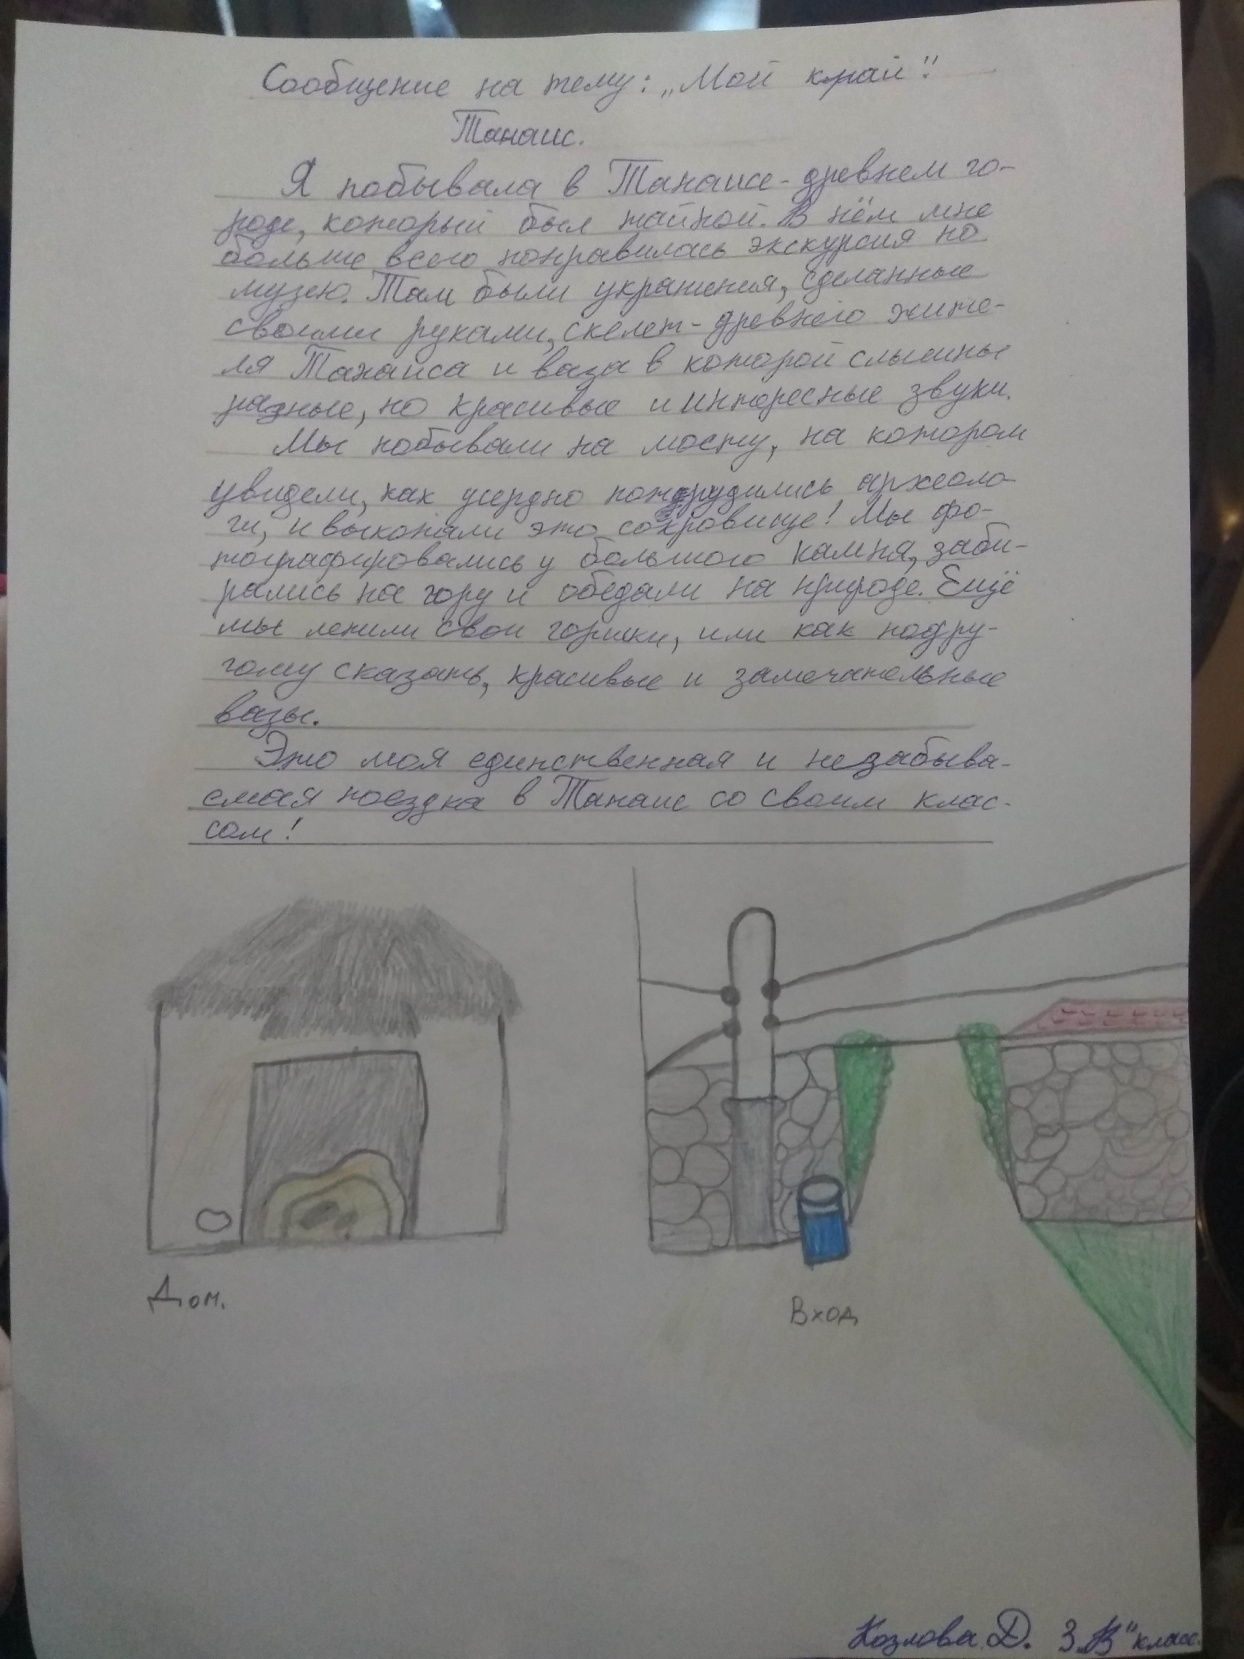 Сообщение на тему: „Мой край".
Танаис.
Я побывала в Танаисе - древнем го-
роде, который был тайной. В нём мне
больше всего понравилась экскурсия по
музею. Там были украшения, сделанные
своими руками, скелет - древнего жите-
ля Танаиса и ваза в которой слышны
разные, но красивые и интересные звуки.
Мы побывали на мосту, на котором
увидели, как усердно потрудились археоло-
ги, и выкопали это сокровище! Мы фо-
тографировались у большого камня, заби-
рались на гору и обедали на природе. Ещё
мы лепили свои горшки, или как подру-
гому сказать, красивые и замечательные
вазы.
Это моя единственная и незабыва-
емая поездка в Танаис со своим клас-
сом!
Дом.
Вход
Козлова Д. 3 „В" класс.